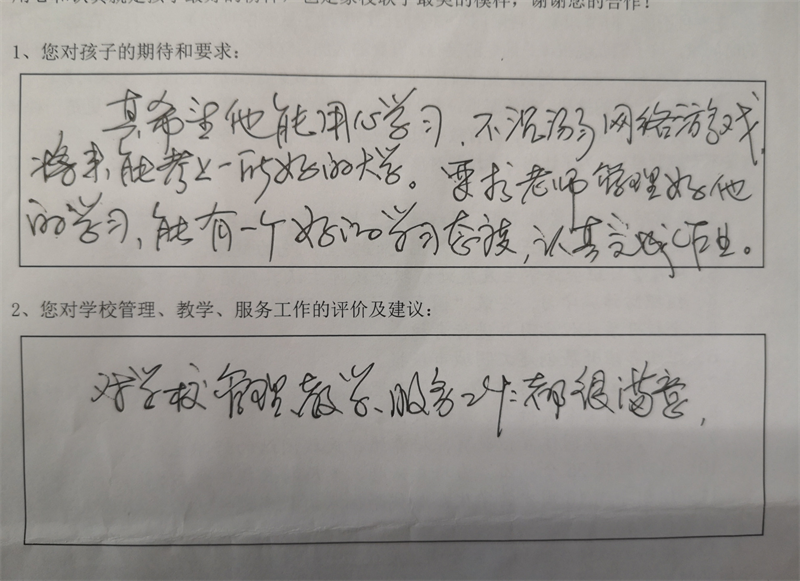 用心和认真就是孩子最好的榜样，也是家校联手最美的模样，谢谢您的合作！
1、您对孩子的期待和要求：
真希望他能用心学习，不沉溺网络游戏，
将来能考上一所好的大学。要求老师管理好他
的学习，能有一个好的学习态度，认真完成作业。
2、您对学校管理、教学、服务工作的评价及建议：
对学校管理、教学、服务工作都很满意，